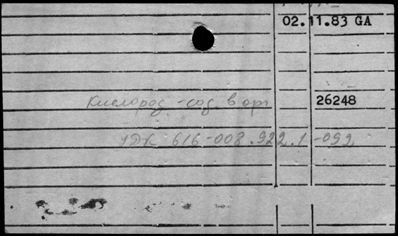 02.11.83 GA
Кислород - сод в орг 26248
УДК 616-008.922.1-092